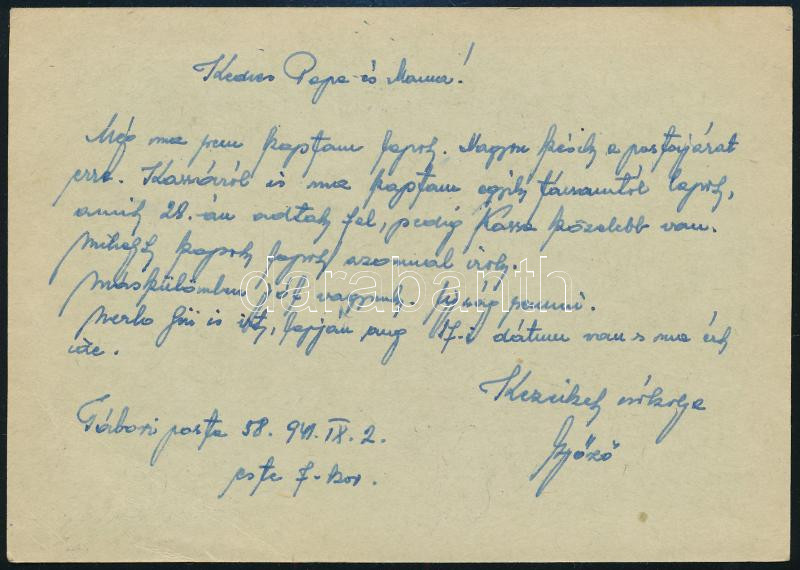 Kedves Papa és Mama!
Még ma sem kaptam lapot. Nagyon késik a postajárat
erre. Kassáról is ma kaptam egyik társamtól lapot,
amit 28.-án adtak fel, pedig Kassa közelebb van.
Mihelyt kapok lapot azonnal írok.
Máskülömben jól vagyunk. Újság semmi.
is írt, lapján aug 17-i dátum van s ma ért
ide.
Kezeiket csókolja
Győző
Tábori posta 58. 941. IX. 2.
este 7-kor.
darabanth